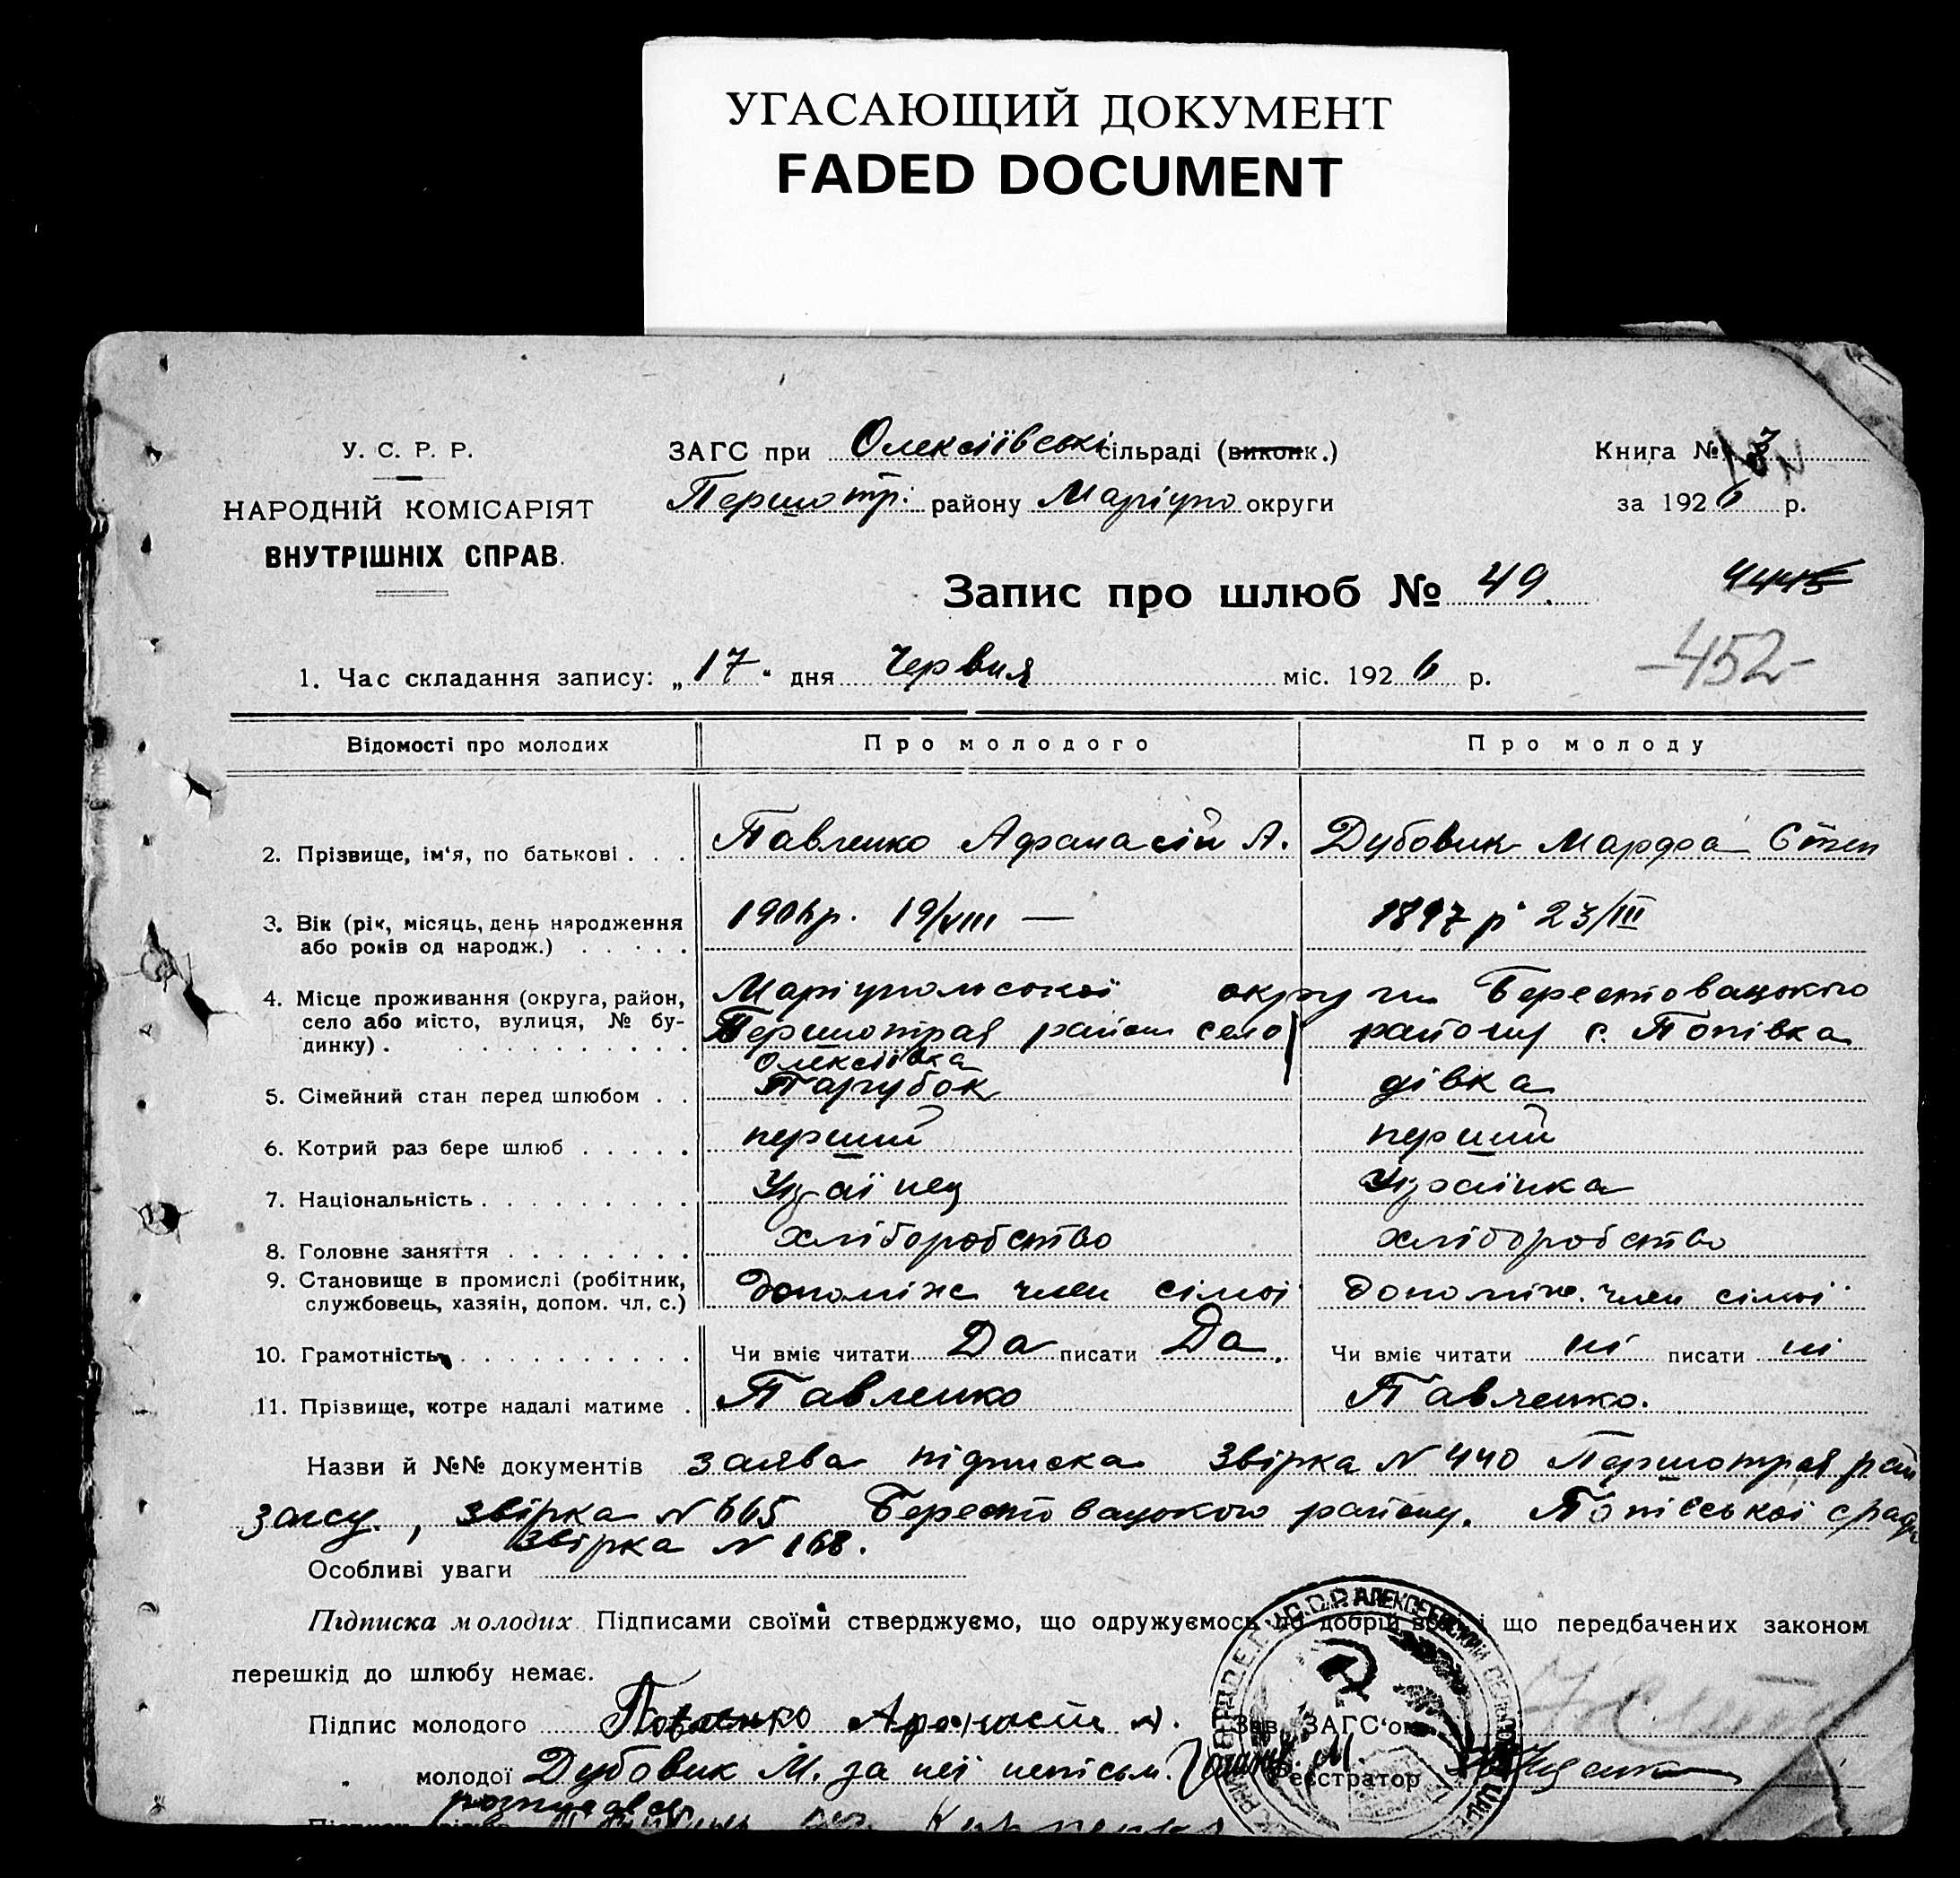 УГАСАЮЩИЙ ДОКУМЕНТ
FADED DOCUMENT
У. С. Р. Р.
НАРОДНІЙ КОМІСАРІЯТ
ВНУТРІШНІХ СПРАВ.
ЗАГС при Олексіївські сільраді (виконк.)
Першотр. району Маріупо округи
Книга №
за 1926 р.
Запис про шлюб № 49.
4445
-452-
1. Час складання запису: „17“ дня Червня міс. 1926 р.
Відомості про молодих Про молодого Про молоду
2. Прізвище, ім‘я, по батькові . . . Павленко Афанасій А. Дубовик Марфа Степ
3. Вік (рік, місяць, день народження або років од народж.) . . . . . 1906 р. 19/VIII — 1897 р 23/III
4. Місце проживання (округа, район, село або місто, вулиця, № будинку) . Маріупольської округи Берестовацького
Першотрав район село району с. Попівка
Олексіївка
5. Сімейний стан перед шлюбом . . Парубок дівка
6. Котрий раз бере шлюб . . . . . перший перший
7. Національність . . . . . . . . . Украінец Українка
8. Головне заняття . . . . . . . . хліборобство хліборобство
9. Становище в промислі (робітник, службовець, хазяін, допом. чл. с.) допоміж член сімьі допоміж. член сімьї
10. Грамотність . . . . . . . . . . Чи вміє читати Да писати Да. Чи вміє читати ні писати ні
11. Прізвище, котре надалі матиме . Павленко Павленко.
Назви й №№ документів заява підписка Звірка N 440 Першотрав рай
загсу, звірка N 665 Берестовацького району. Попівської сради
звірка N 168.
Особливі уваги
Підписка молодих. Підписами своїми стверджуємо, що одружуємось по добрій волі і що передбачених законом
перешкід до шлюбу немає.
Підпис молодого Павленко Афанасій А.
Зав. ЗАГС‘ом
молодої Дубовик М. за неї неписьм. М.
Реєстратор
розписався